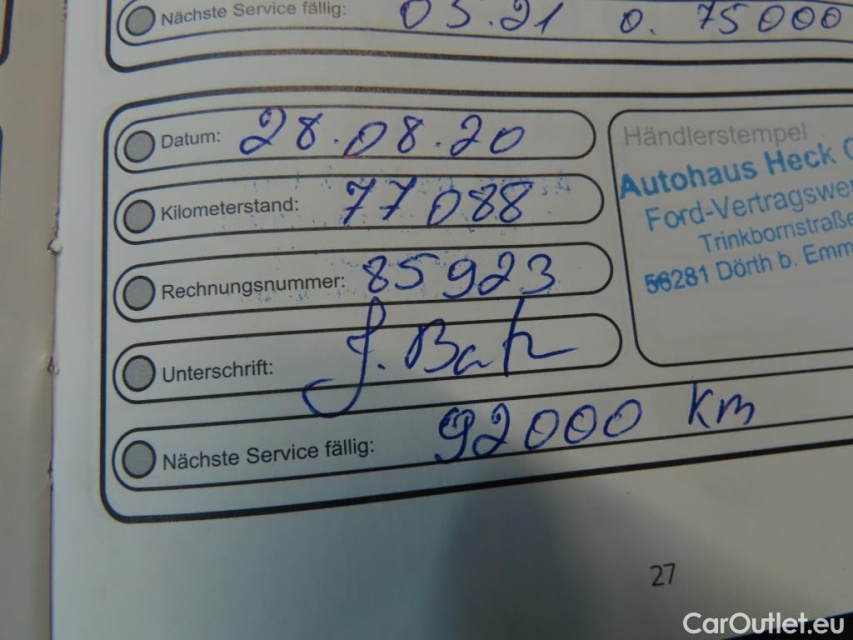 Nächste Service fällig: 05.21 o. 75000
Datum: 28.08.20
Kilometerstand: 77088
Rechnungsnummer: 85923
Unterschrift:
Nächste Service fällig: 92000 km
Händlerstempel
Autohaus Heck
Ford-Vertragswe
Trinkbornstraße
56281 Dörth b. Emm
27
CarOutlet.eu